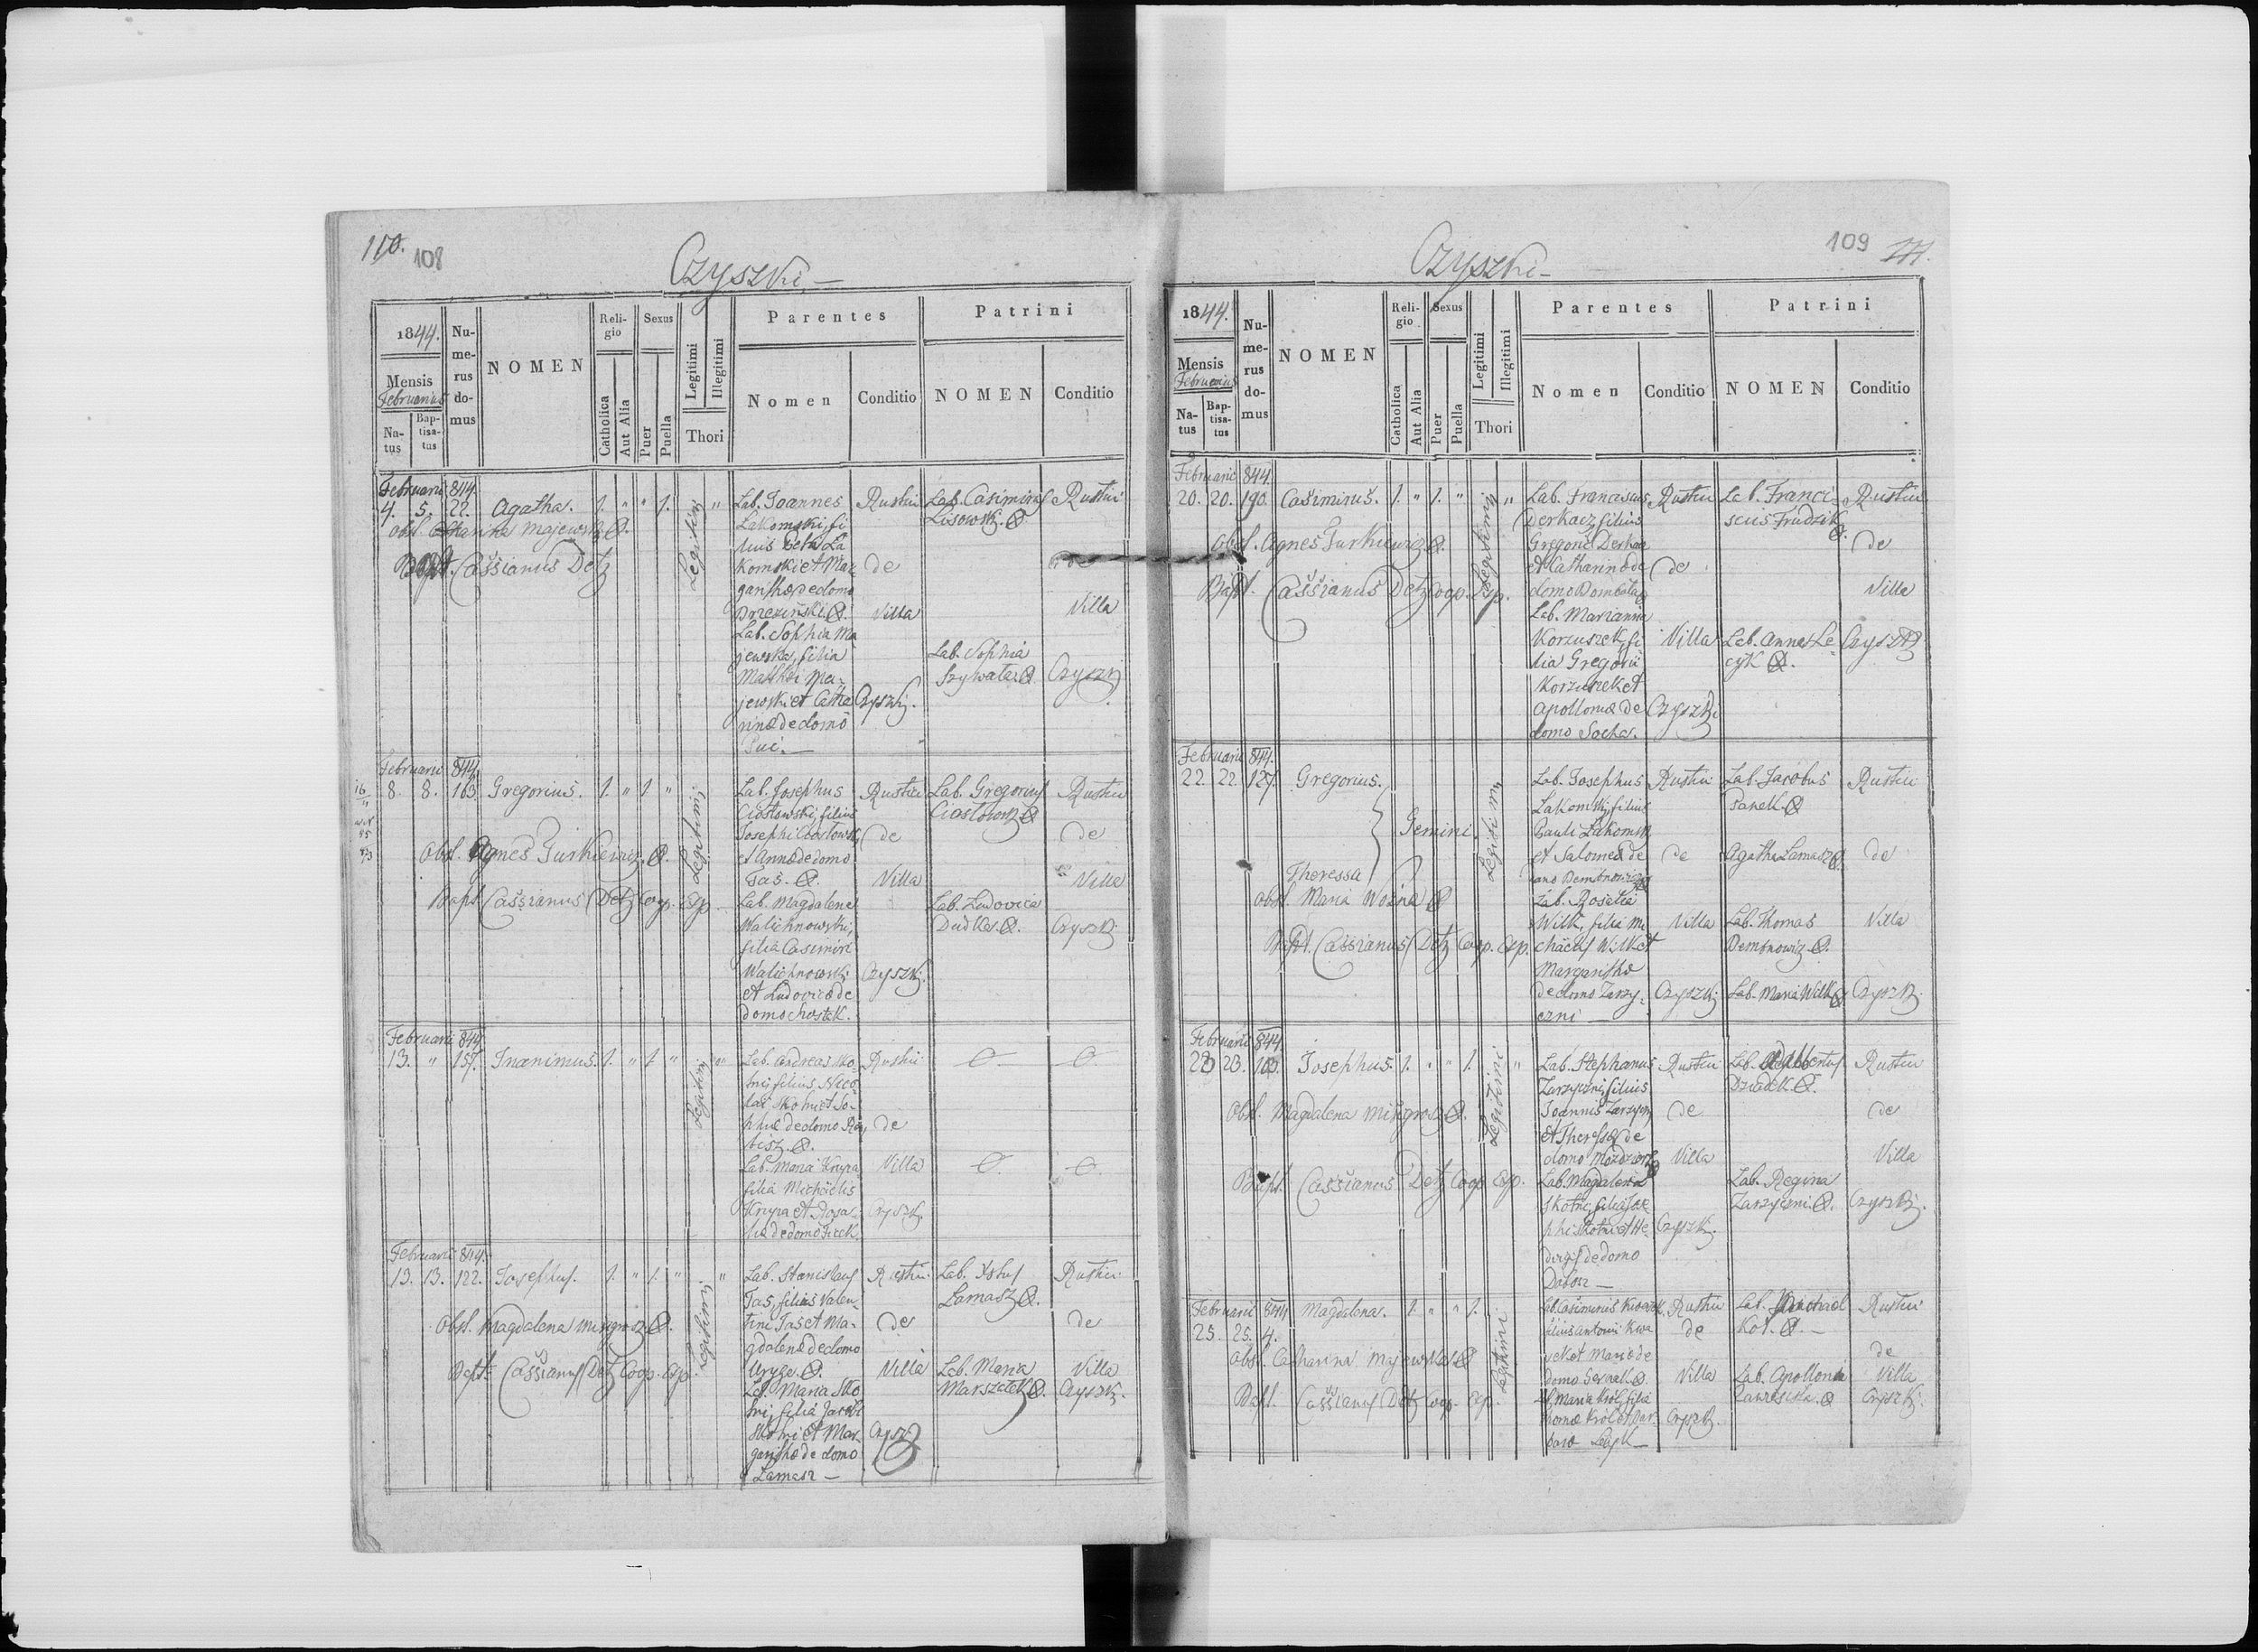 110. 108
Czyszki
1844.
Mensis
Februarius
Natus
Baptisatus
Numerus domus
NOMEN
Religio
Catholica
Aut Alia
Sexus
Puer
Puella
Legitimi
Illegitimi
Thori
Parentes
Nomen
Conditio
Patrini
NOMEN
Conditio
Februarii 844.
4. 5. 22. Agatha. 1. " " 1. "
Legitimi
Obst. Majewska
Bapt. Cassianus Detz
Lab. Joannes
Lakomski, fi
lius Petri La
komski et Mar
garithæ de domo
Lab. Sophia Ma
jewska, filia
Matthei Ma-
jewski et Catha
rinæ de domo
Puc.
Rustici
de
Villa
Czyszki.
Lab. Casimirus
Lisowski.
Lab. Sophia
Rustici
de
Villa
Czyszki
Februarii 844.
8. 8. 163. Gregorius. 1. " 1. "
Legitimi
Obst. Agnes Turkiewicz.
Bapt. Cassianus Detz Coop. Exp.
Lab. Josephus
Ciostowski, filius
Josephi Ciostowski
et Annæ de domo
Tas.
Lab. Magdalena
Walichnowska,
filia Casimiri
Walichnowski
et Ludovicæ de
domo Chostek.
Rustici
de
Villa
Czyszki.
Lab. Gregorius
Ciostowski
Lab. Ludovica
Dudka.
Rustici
de
Villa
Czyszki
Februarii 844.
13. " 157. Inanimus. 1. " 1. " "
Legitimi
Lab. Andreas Sko
tni, filius Nico
lai Skotni et So-
phiæ de domo
Lab. Maria Krupa
filia Michaelis
Krupa et Rosa-
liæ de domo Ficek
Rustici
de
Villa
Czyszki
Februarii 844.
13. 13. 122. Josephus. 1. " 1. " "
Legitimi
Obst. Magdalena
Bapt. Cassianus Detz Coop. Exp.
Lab. Stanislaus
Tas, filius Valen-
tini Tas et Ma-
gdalenæ de domo
Uryga.
Lab. Maria Sko
tni, filia Jacobi
Skotni et Mar-
garithæ de domo
Lamasz
Rustici
de
Villa
Czyszki
Lab.
Lamasz
Lab. Maria
Marszalek
Rustici
de
Villa
Czyszki.
109
Czyszki
1844.
Mensis
Februarius
Natus
Baptisatus
Numerus domus
NOMEN
Religio
Catholica
Aut Alia
Sexus
Puer
Puella
Legitimi
Illegitimi
Thori
Parentes
Nomen
Conditio
Patrini
NOMEN
Conditio
Februarii 844.
20. 20. 190. Casimirus. 1. " 1. " "
Legitimi
Obst. Agnes Turkiewicz.
Bapt. Cassianus Detz Coop. Exp.
Lab. Franciscus
Derkacz, filius
Gregorii Derkacz
et Catharinæ de
domo
Lab. Marianna
Korzuszek, fi
lia Gregorii
Korzuszek et
Apolloniæ de
domo Socha.
Rustici
de
Villa
Czyszki
Lab. Franci
scus Frudzik
Lab. Anna Le
cyk
Rustici
de
Villa
Czyszki
Februarii 844.
22. 22. 127. Gregorius.
Gemini
Theressa
Legitimi
Obst. Maria Wozna
Bapt. Cassianus Detz Coop. Exp.
Lab. Josephus
Lakomski, filius
Pauli Lakomski
et Salomeæ de
Lab. Rosalia
Wilk, filia Mi
chaelis Wilk et
Margarithæ
de domo Zarzy-
czni
Rustici
de
Villa
Czyszki
Lab. Jacobus
Panek.
Agatha Lamasz
Lab. Thomas
Dembnowicz.
Lab. Maria Wilk
Rustici
de
Villa
Czyszki
Februarii 844.
23 23. 100. Josephus. 1. " " 1. "
Legitimi
Obst. Magdalena
Bapt. Cassianus Detz Coop Exp.
Lab. Stephanus
Zarzyczni, filius
Joannis Zarzyczni
et Theressæ de
domo
Lab. Magdalena
Skotni, filia Jose
phi Skotni et He-
dvigis de domo
Dobosz
Rustici
de
Villa
Czyszki.
Lab. Adalbertus
Dziadek.
Lab. Regina
Zarzyczni.
Rustici
de
Villa
Czyszki.
Februarii 844 Magdalena. 1. " " 1.
25. 25. 4.
Legitimi
Obst. Catharina Majewska
Bapt. Cassianus Detz Coop. Exp.
Lab. Casimirus
filius Antonii
et Mariæ de
domo
Lab. Maria Król, filia
Thomæ Król et Bar-
baræ Lecyk
Rustici
de
Villa
Czyszki.
Lab. Michael
Kot.
Lab. Apollonia
Rustici
de
Villa
Czyszki.